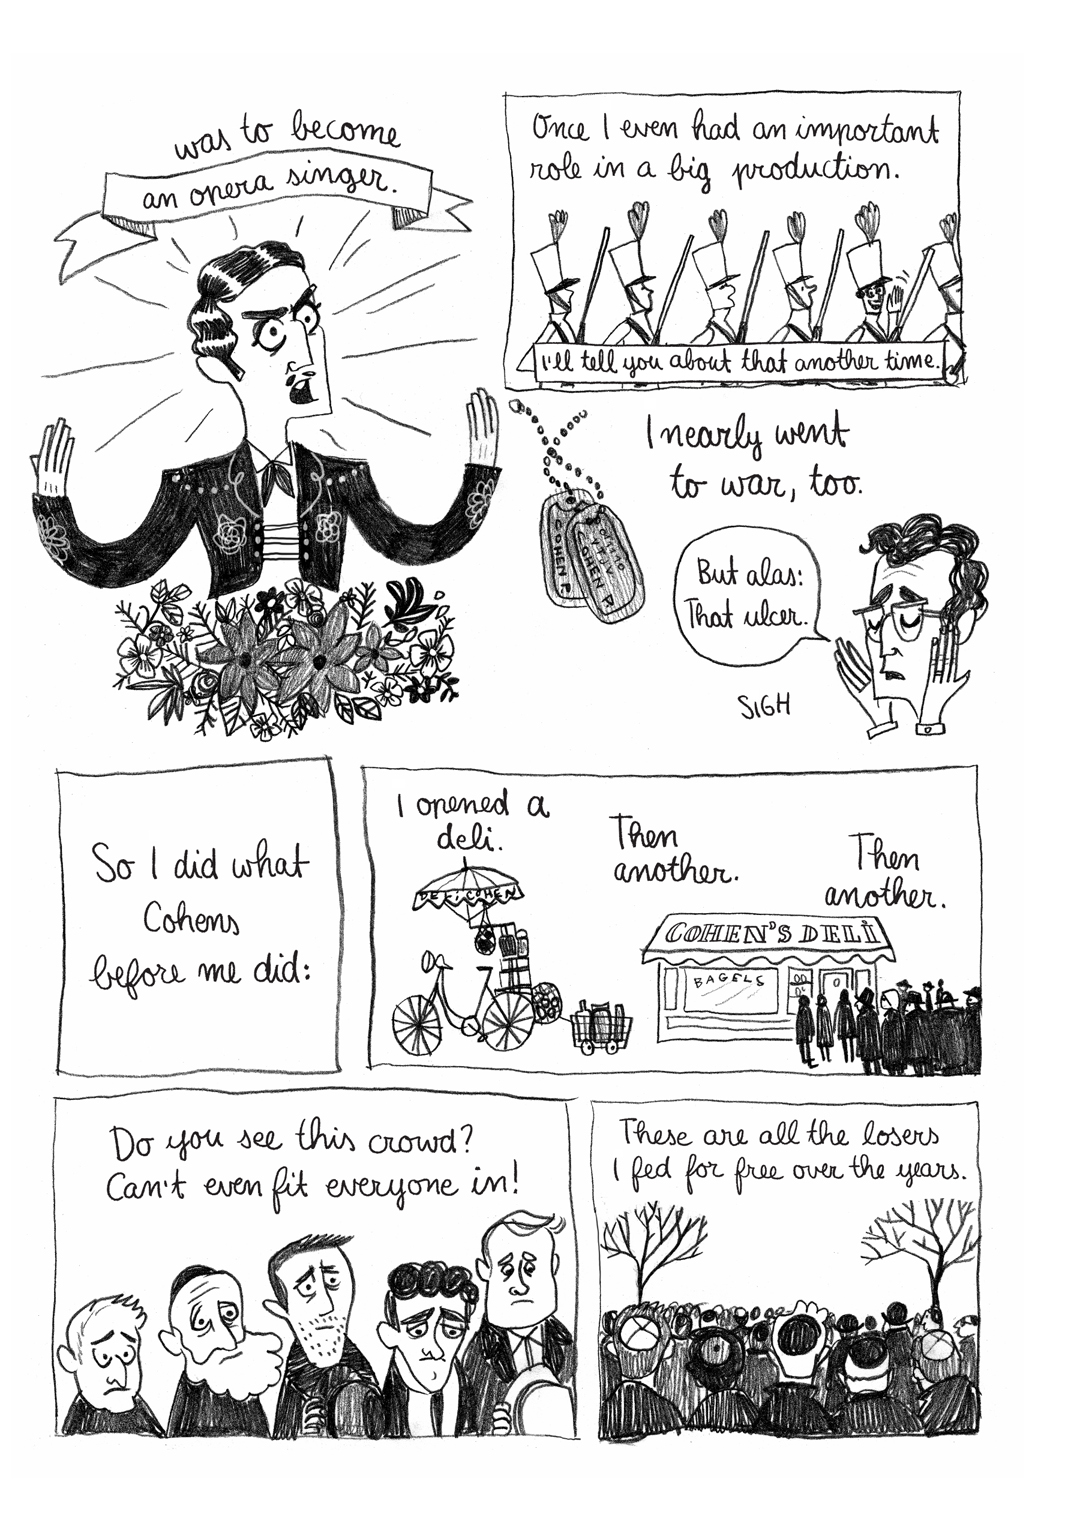 was to become
an opera singer.
Once I even had an important
role in a big production.
I'll tell you about that another time.
I nearly went
to war, too.
COHEN R
COHEN R
But alas:
That ulcer.
SIGH
So I did what
Cohens
before me did:
I opened a
deli.
DELI COHEN
Then
another.
Then
another.
COHEN'S DELI
BAGELS
Do you see this crowd?
Can't even fit everyone in!
These are all the losers
I fed for free over the years.